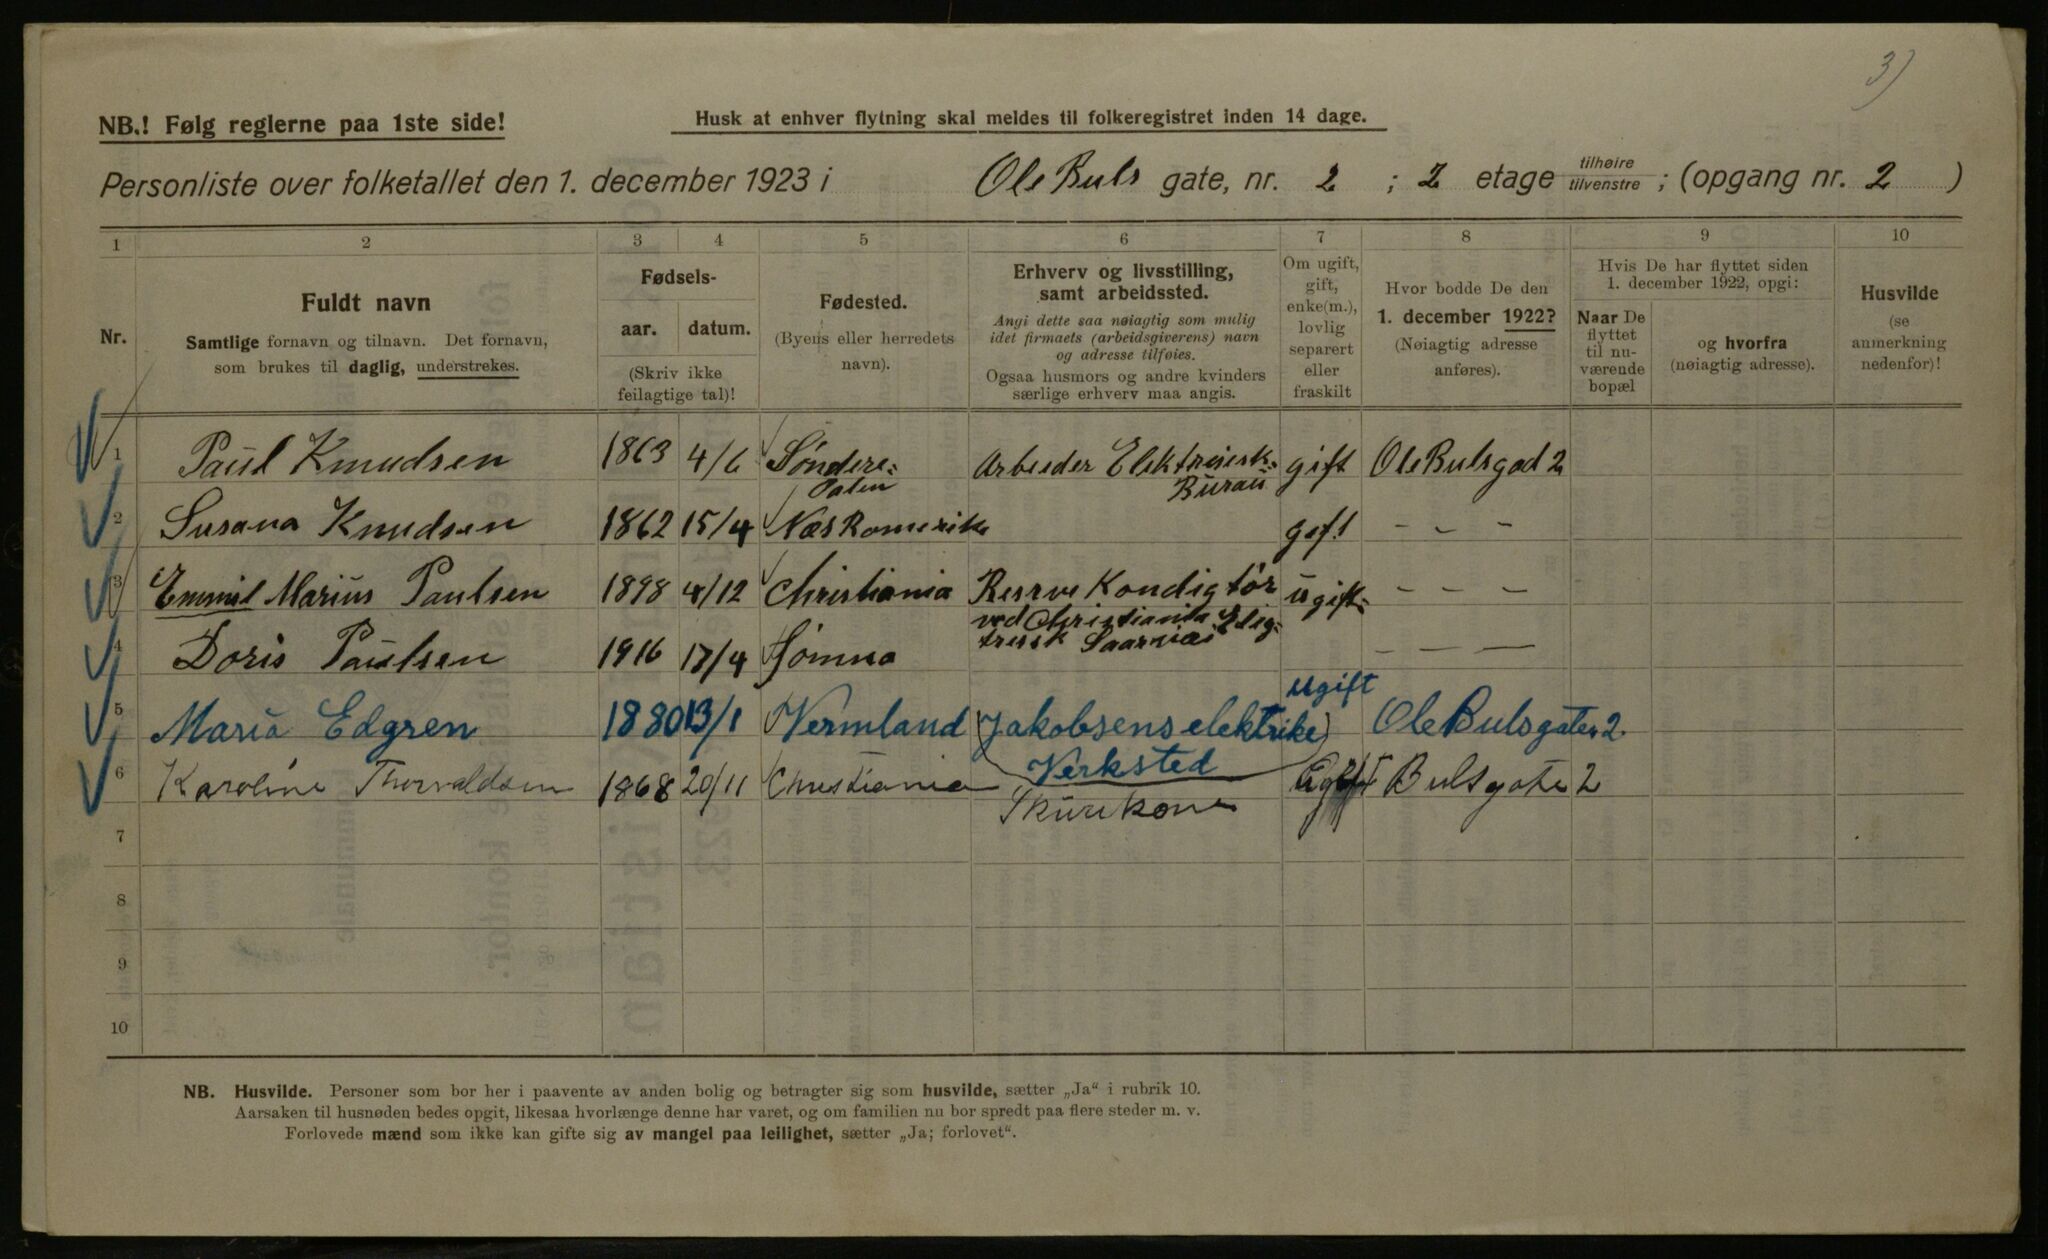 3)
NB.! Følg reglerne paa 1ste side!
Husk at enhver flytning skal meldes til folkeregistret inden 14 dage.
Personliste over folketallet den 1. december 1923 i Ole Buls gate, nr. 2 ; 2 etage tilhøire tilvenstre ; (opgang nr. 2 )
1 2 3 4 5 6 7 8 9 10
Nr.
Fuldt navn
Samtlige fornavn og tilnavn. Det fornavn,
som brukes til daglig, understrekes.
Fødsels-
aar. datum.
(Skriv ikke
feilagtige tal)!
Fødested.
(Byens eller herredets
navn).
Erhverv og livsstilling,
samt arbeidssted.
Angi dette saa nøiagtig som mulig
idet firmaets (arbeidsgiverens) navn
og adresse tilføies.
Ogsaa husmors og andre kvinders
særlige erhverv maa angis.
Om ugift,
gift,
enke(m.),
lovlig
separert
eller
fraskilt
Hvor bodde De den
1. december 1922?
(Nøiagtig adresse
anføres).
Hvis De har flyttet siden
1. december 1922, opgi:
Naar De
flyttet
til nu-
værende
bopæl
og hvorfra
(nøiagtig adresse).
Husvilde
(se
anmerkning
nedenfor)!
1 Paul Knudsen 1863 4/6 Søndere= Arbeider Elektriesk= gift Ole Bulsgad 2
Dalen Burau
2 Susana Knudsen 1862 15/4 Næs Romerike gift – – –
3 Emmil Marius Paulsen 1898 4/12 Christiania Resrve Kondigtør ugift= – – –
ved Christiania Elig=
4 Doris Paulsen 1916 17/4 Sømna trissk – – –
ugift
5 Maria Edgren 1880 13/1 Vermland (Jakobsens elektrike) Ole Bulsgaten 2.
Verksted
6 Karoline Thorvaldsen 1868 20/11 Christiania Ugift Bulsgate 2
Skurekone
7
8
9
10
NB. Husvilde. Personer som bor her i paavente av anden bolig og betragter sig som husvilde, sætter „Ja“ i rubrik 10.
Aarsaken til husnøden bedes opgit, likesaa hvorlænge denne har varet, og om familien nu bor spredt paa flere steder m. v.
Forlovede mænd som ikke kan gifte sig av mangel paa leilighet, sætter „Ja; forlovet“.